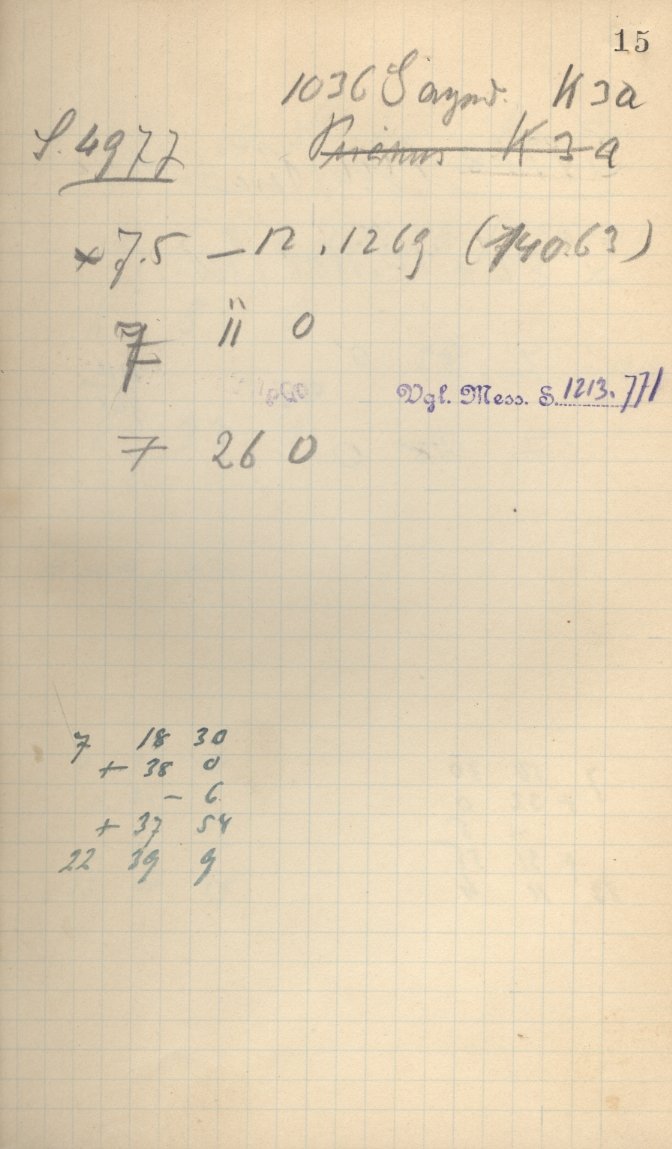 15
1036 Ganymed. K 3a
K 3a
S. 4977
× 7.5 – 12 . 1269 (740.63)
7 11 0
Vgl. Mess. S. 1213. 771
7 26 0
7 18 30
+ 38 0
– 6
+ 37 54
22 39 9